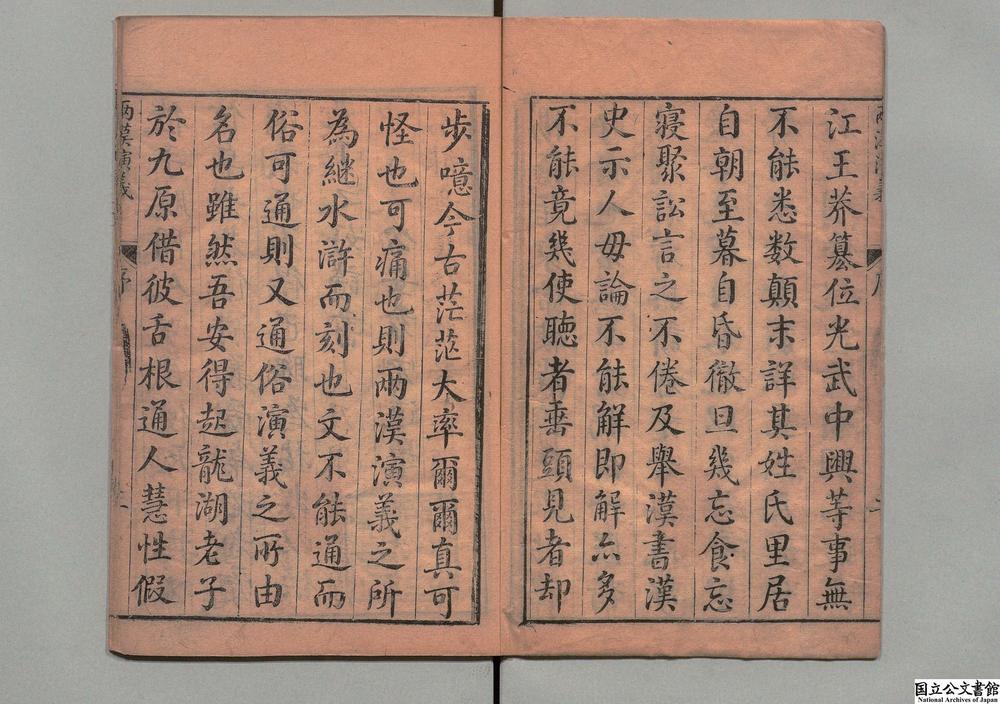 江王莽簒位光武中興等事無
不能悉数顛末詳其姓氏里居
自朝至暮自昏徹旦幾忘食忘
寝聚訟言之不倦及舉漢書漢
史示人毋論不能解即解亦多
不能竟幾使聴者垂頭見者却
歩噫今古茫茫大率爾爾真可
怪也可痛也則兩漢演義之所
為継水滸而刻也文不能通而
俗可通則又通俗演義之所由
名也雖然吾安得起龍湖老子
於九原借彼舌根通人慧性假
兩漢演義
序
二
国立公文書館
National Archives of Japan